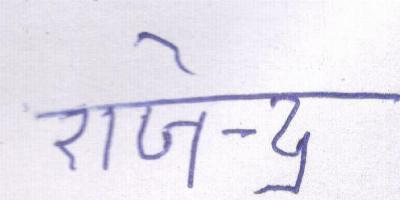 राजेन्द्र